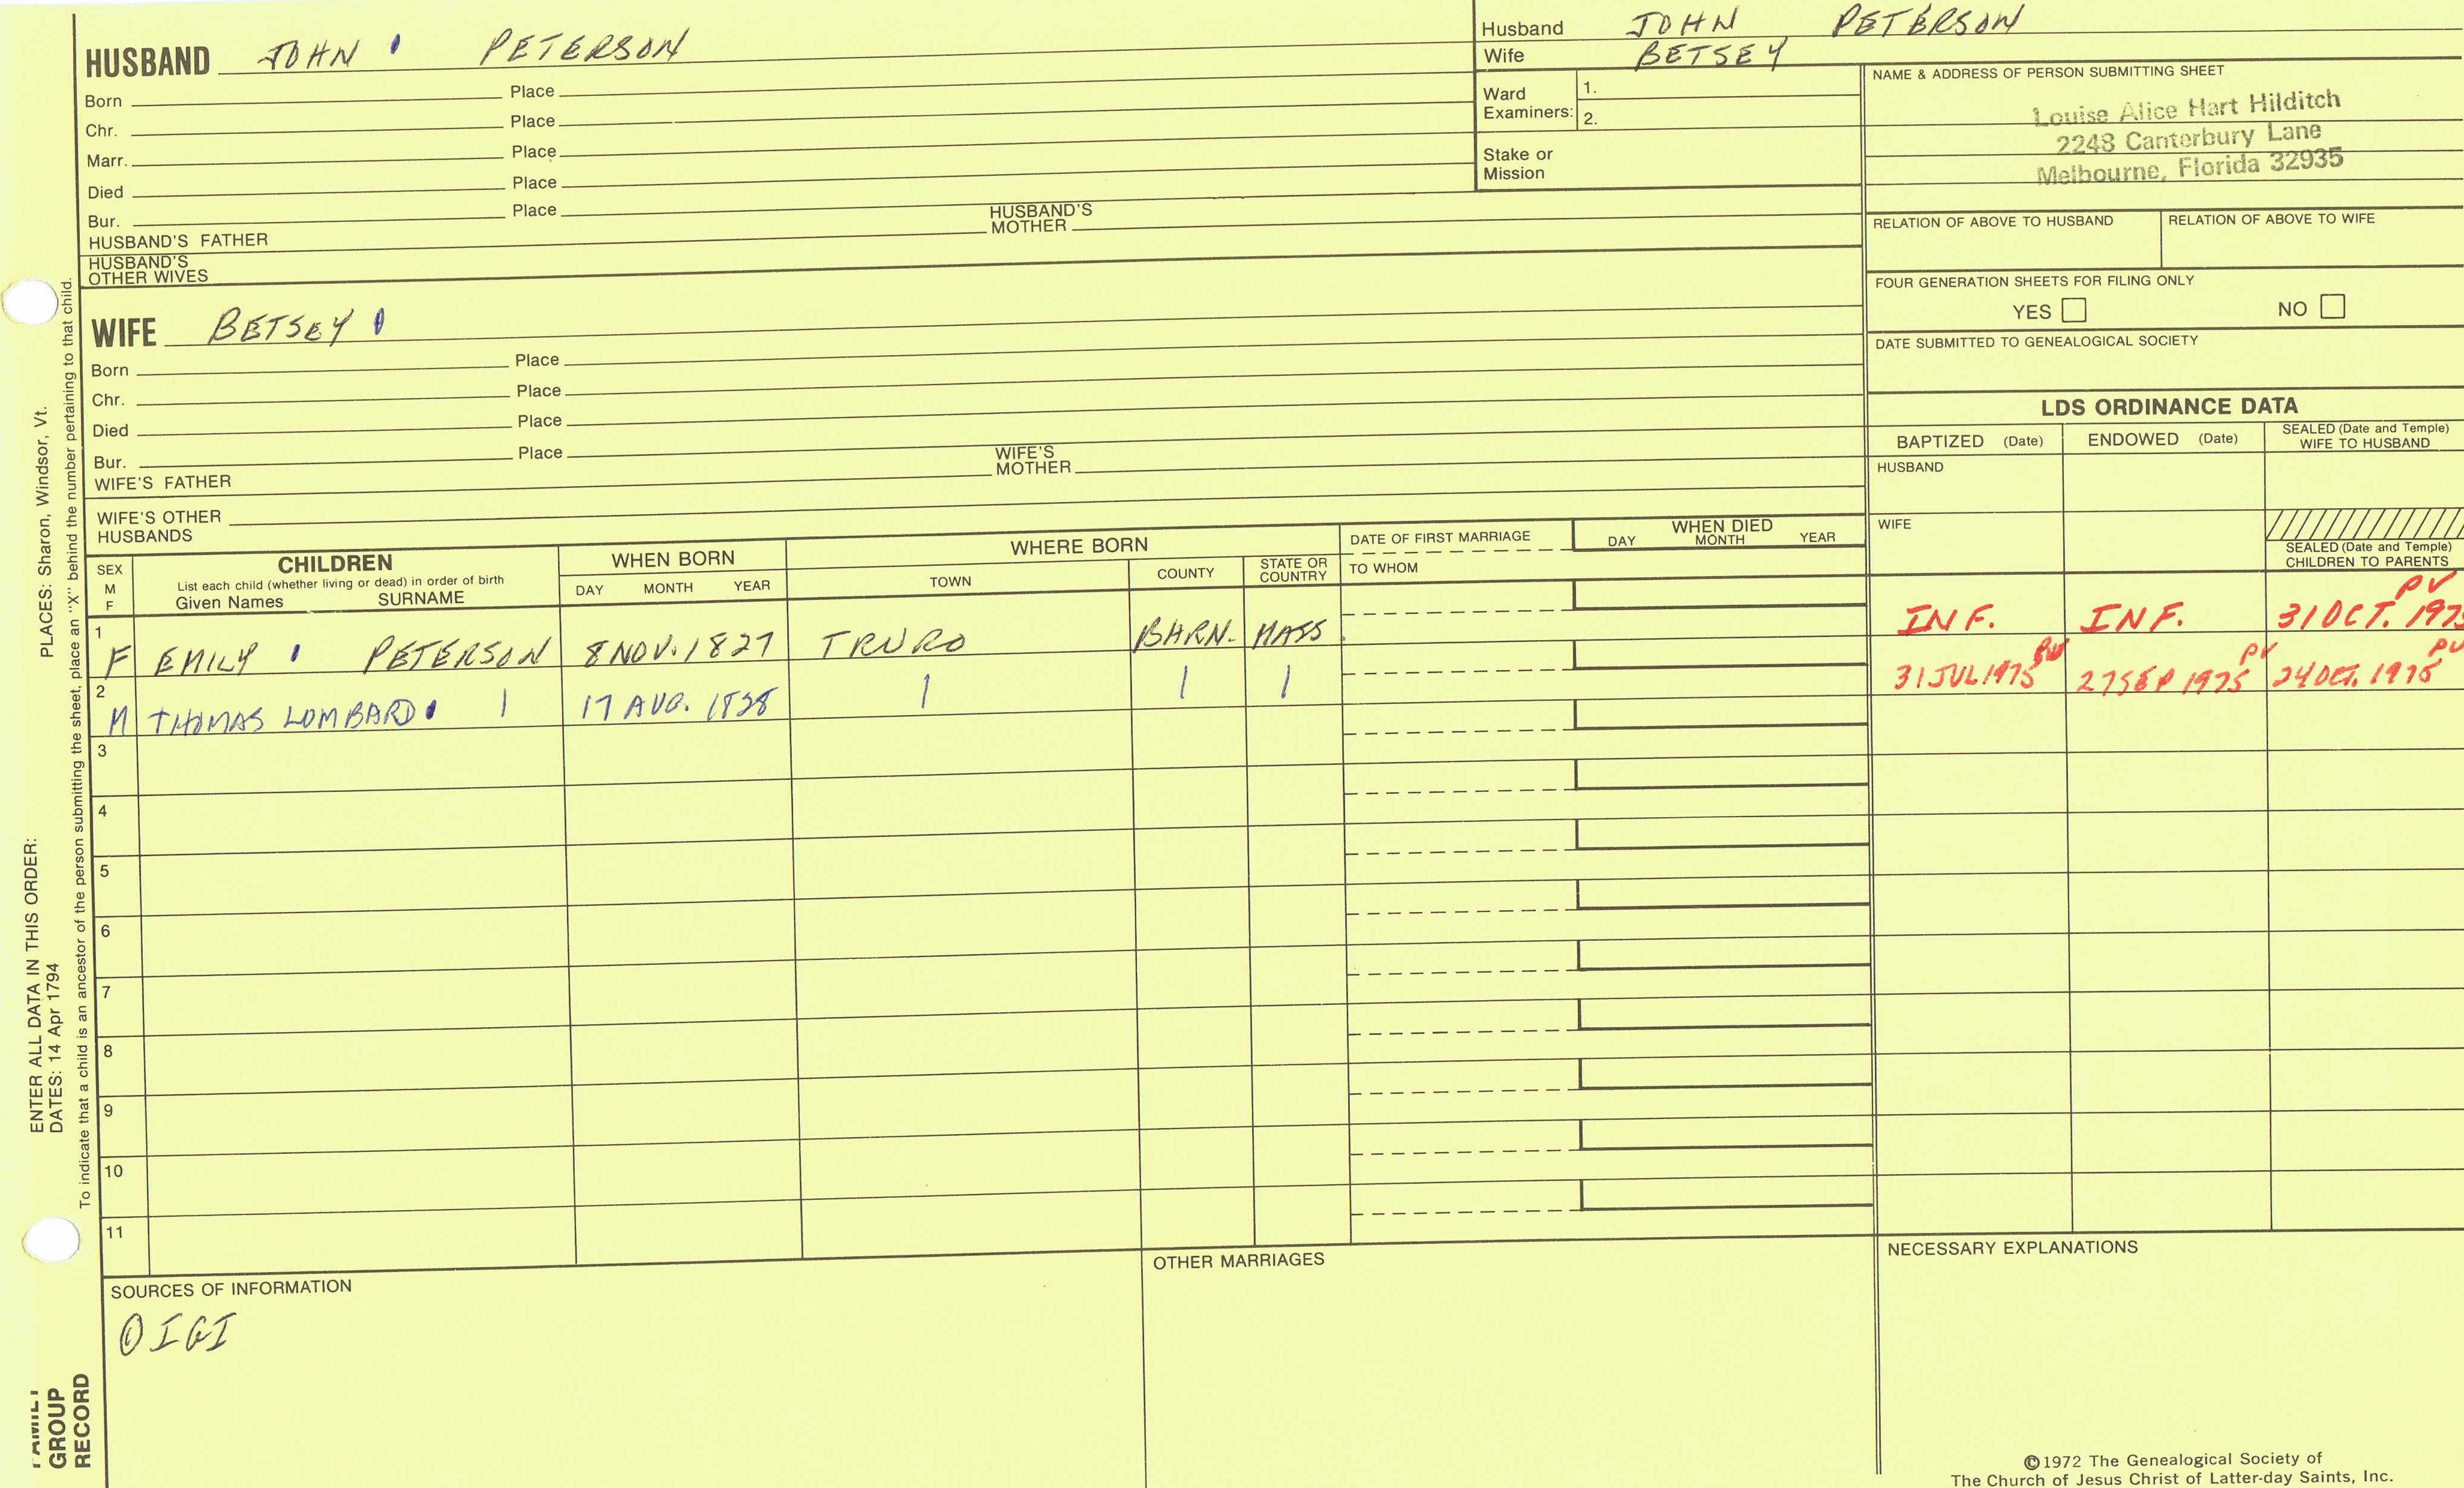 HUSBAND JOHN PETERSON
Born Place
Chr. Place
Marr. Place
Died Place
Bur. Place
HUSBAND'S FATHER HUSBAND'S MOTHER
HUSBAND'S OTHER WIVES
WIFE BETSEY
Born Place
Chr. Place
Died Place
Bur. Place
WIFE'S FATHER WIFE'S MOTHER
WIFE'S OTHER HUSBANDS
Husband JOHN PETERSON
Wife BETSEY
Ward Examiners: 1.
2.
Stake or Mission
NAME & ADDRESS OF PERSON SUBMITTING SHEET
Louise Alice Hart Hilditch
2248 Canterbury Lane
Melbourne, Florida 32935
RELATION OF ABOVE TO HUSBAND RELATION OF ABOVE TO WIFE
FOUR GENERATION SHEETS FOR FILING ONLY
YES NO
DATE SUBMITTED TO GENEALOGICAL SOCIETY
LDS ORDINANCE DATA
BAPTIZED (Date) ENDOWED (Date) SEALED (Date and Temple) WIFE TO HUSBAND
HUSBAND
WIFE
SEALED (Date and Temple) CHILDREN TO PARENTS
SEX M F
CHILDREN
List each child (whether living or dead) in order of birth
Given Names SURNAME
WHEN BORN
DAY MONTH YEAR
WHERE BORN
TOWN COUNTY STATE OR COUNTRY
DATE OF FIRST MARRIAGE
TO WHOM
WHEN DIED
DAY MONTH YEAR
1 F EMILY PETERSON 8 NOV. 1827 TRURO BARN. MASS. INF. INF. 31 OCT. 197 PV
2 M THOMAS LOMBARD 17 AUG. 1828 31 JUL 1975 27 SEP 1975 PV 24 OCT. 1975 PV
3
4
5
6
7
8
9
10
11
SOURCES OF INFORMATION
① IGI
OTHER MARRIAGES
NECESSARY EXPLANATIONS
©1972 The Genealogical Society of
The Church of Jesus Christ of Latter-day Saints, Inc.
ENTER ALL DATA IN THIS ORDER:
DATES: 14 Apr 1794 PLACES: Sharon, Windsor, Vt.
To indicate that a child is an ancestor of the person submitting the sheet, place an "X" behind the number pertaining to that child.
FAMILY
GROUP
RECORD